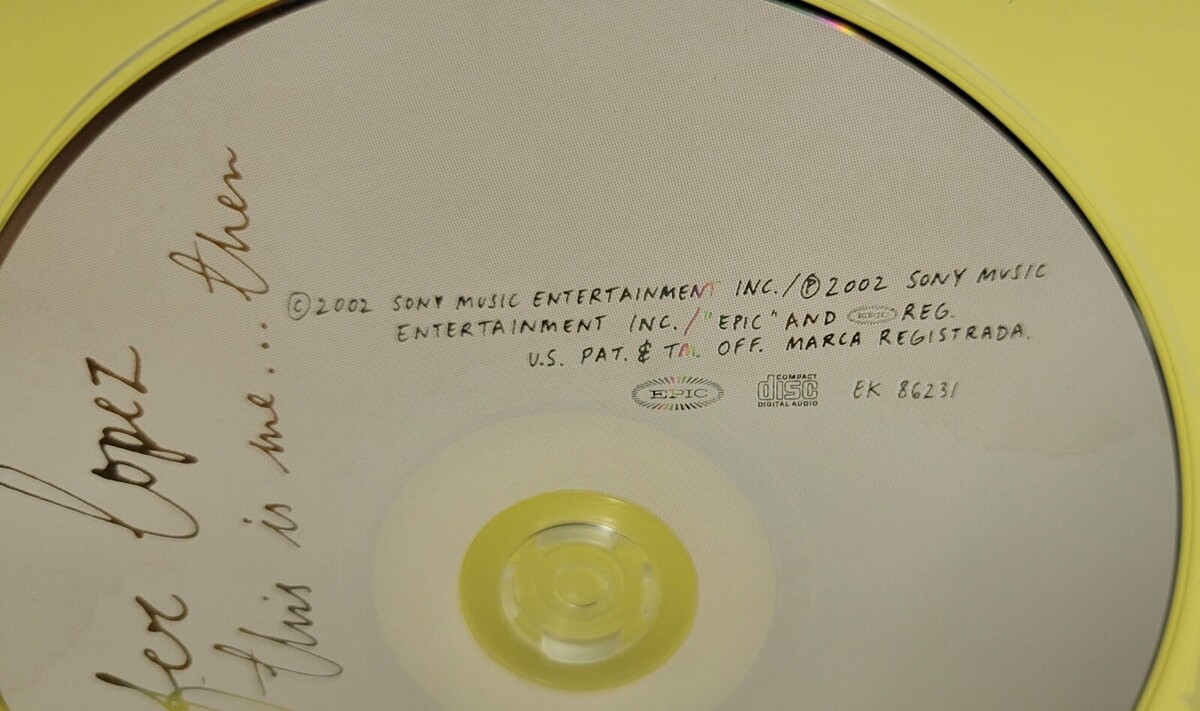 fer lopez
this is me... then
©2002 SONY MUSIC ENTERTAINMENT INC./℗2002 SONY MUSIC
ENTERTAINMENT INC./"EPIC" AND EPIC REG.
U.S. PAT. & TM. OFF. MARCA REGISTRADA.
EPIC COMPACT disc DIGITAL AUDIO EK 86231